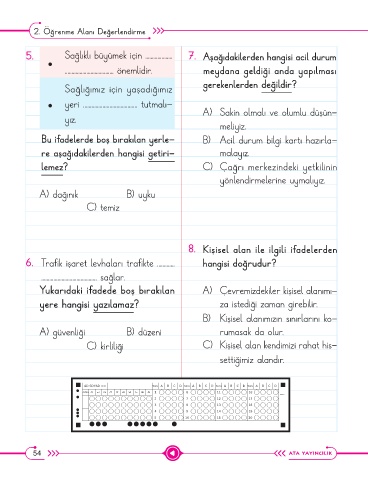 2. Öğrenme Alanı Değerlendirme
5.
• Sağlıklı büyümek için ................
............................. önemlidir.
Sağlığımız için yaşadığımız
• yeri ................................ tutmalı-
yız.
Bu ifadelerde boş bırakılan yerle-
re aşağıdakilerden hangisi getiri-
lemez?
A) dağınık B) uyku
C) temiz
6. Trafik işaret levhaları trafikte ...........
................................. sağlar.
Yukarıdaki ifadede boş bırakılan
yere hangisi yazılamaz?
A) güvenliği B) düzeni
C) kirliliği
7. Aşağıdakilerden hangisi acil durum
meydana geldiği anda yapılması
gerekenlerden değildir?
A) Sakin olmalı ve olumlu düşün-
meliyiz.
B) Acil durum bilgi kartı hazırla-
malayız.
C) Çağrı merkezindeki yetkilinin
yönlendirmelerine uymalıyız.
8. Kişisel alan ile ilgili ifadelerden
hangisi doğrudur?
A) Çevremizdekiler kişisel alanımı-
za istediği zaman girebilir.
B) Kişisel alanımızın sınırlarını ko-
rumasak da olur.
C) Kişisel alan kendimizi rahat his-
settiğimiz alandır.
54
ATA YAYINCILIK